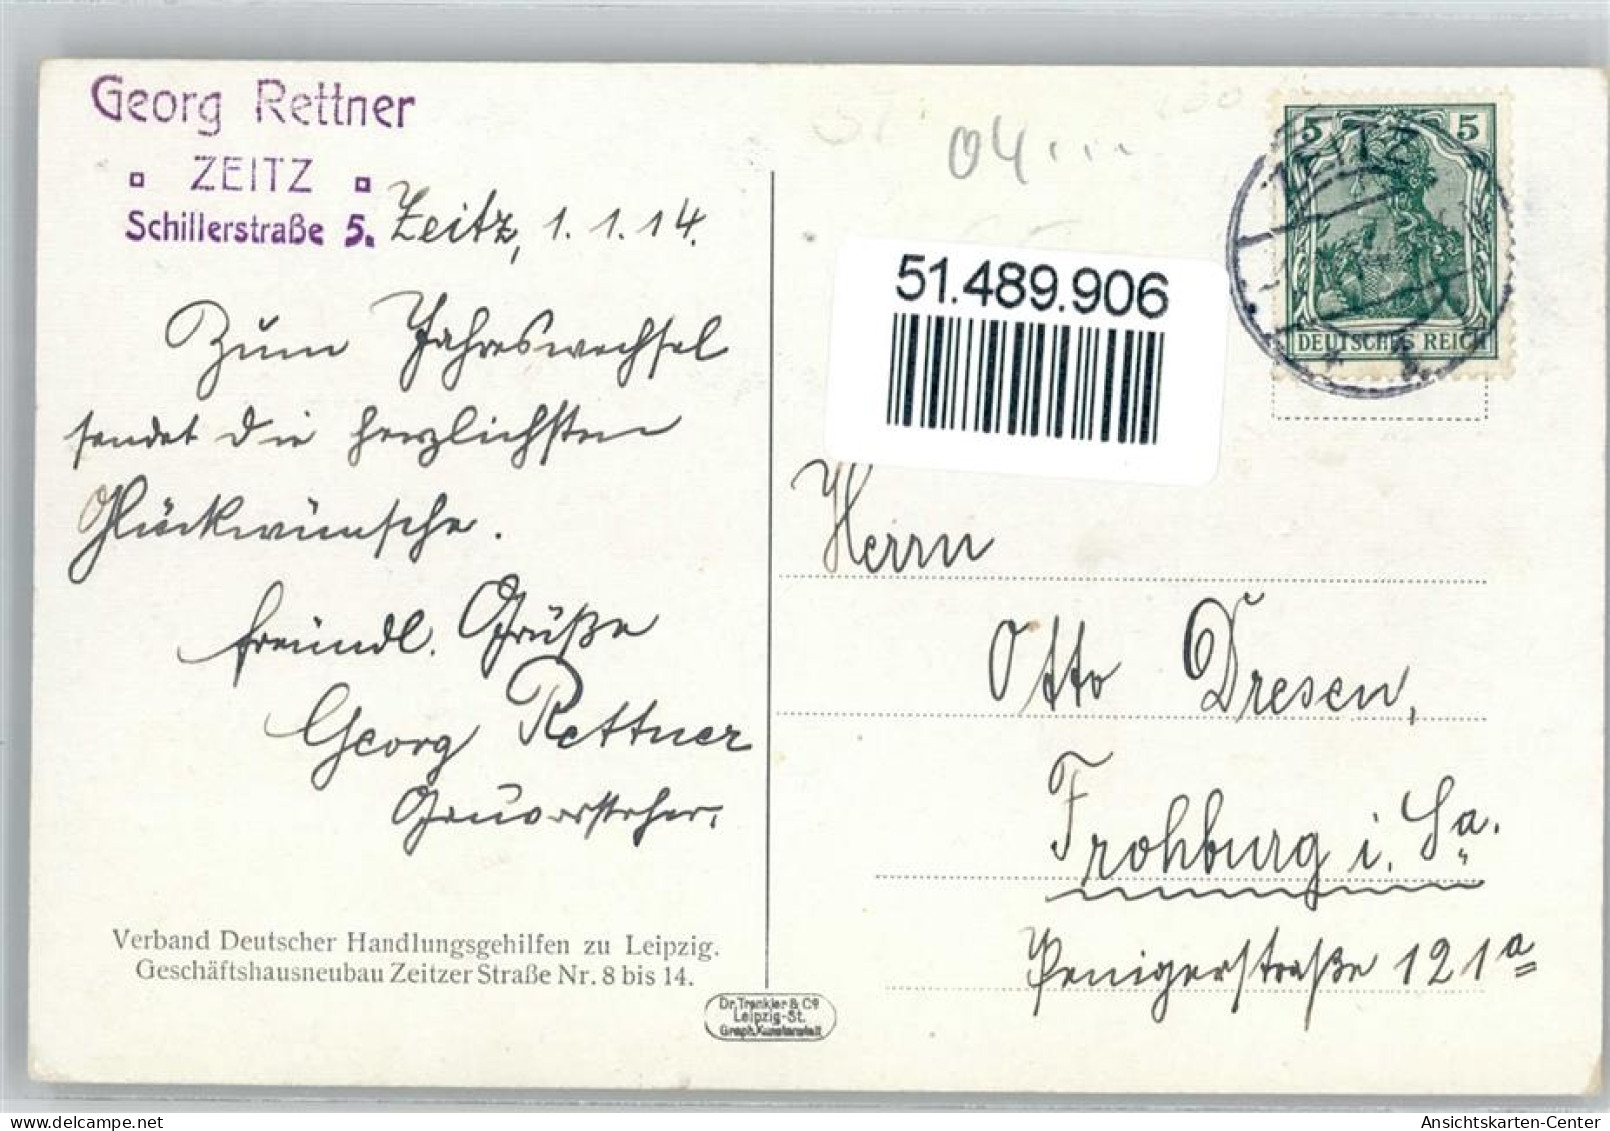 Georg Rettner
ZEITZ
Schillerstraße 5.
Zeitz, 1.1.14.
Zum Jahreswechsel
sendet die herzlichsten
Glückwünsche.
freundl. Grüße
Georg Rettner
Gauvorsteher.
Verband Deutscher Handlungsgehilfen zu Leipzig.
Geschäftshausneubau Zeitzer Straße Nr. 8 bis 14.
Dr. Trenkler & Co
Leipzig-St.
Graph. Kunstanstalt
04...
51.489.906
5 5
ZEITZ
DEUTSCHES REICH
Herrn
Otto Dresen,
Frohburg i. Sa.
Penigerstraße 121a
Ansichtskarten-Center